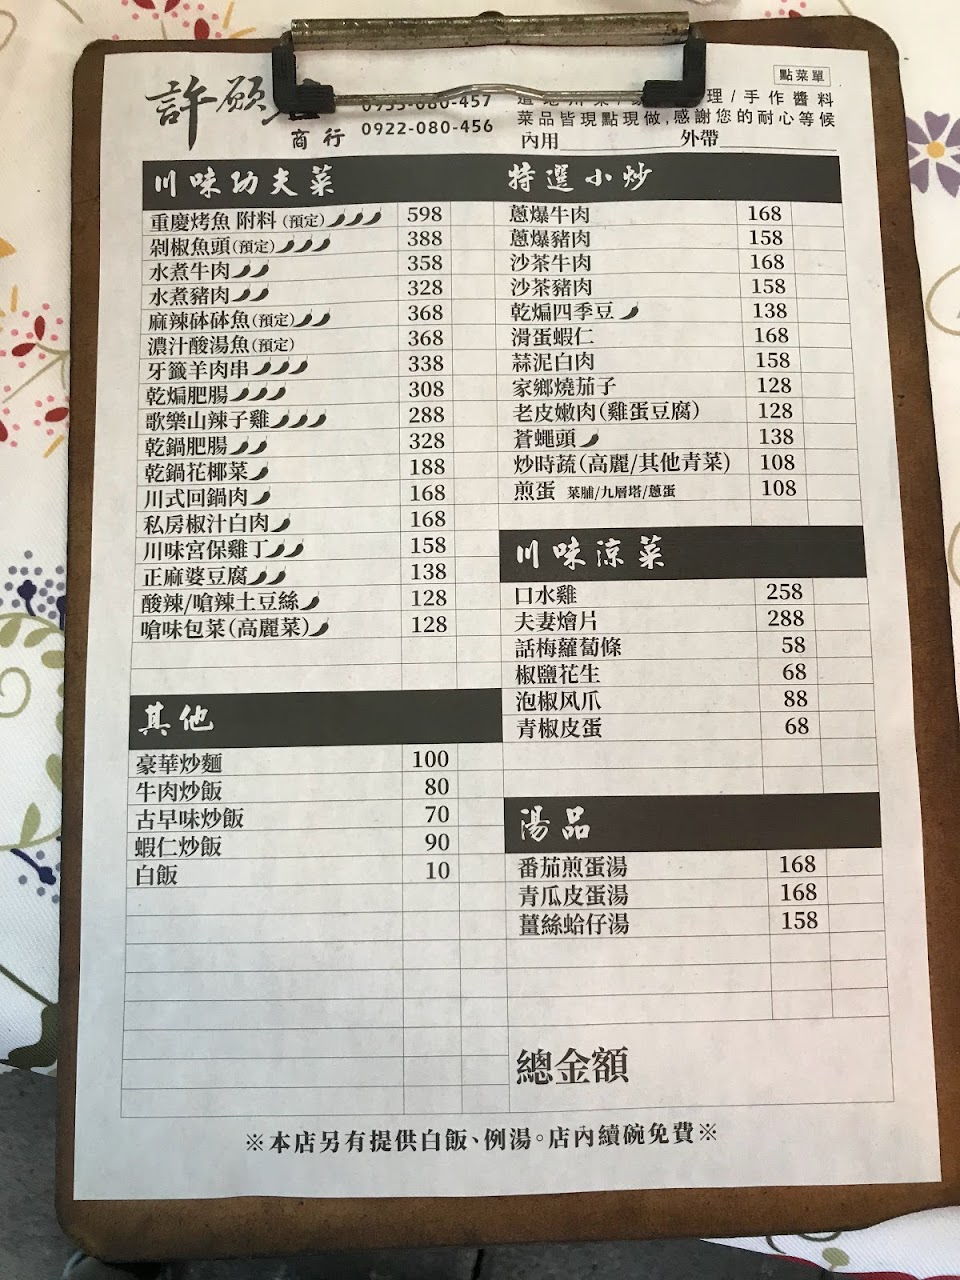 點菜單
許願
商行
0935-080-457
0922-080-456
理/手作醬料
菜品皆現點現做,感謝您的耐心等候
內用 外帶
川味功夫菜
重慶烤魚 附料(預定) 598
剁椒魚頭(預定) 388
水煮牛肉 358
水煮豬肉 328
麻辣砵砵魚(預定) 368
濃汁酸湯魚(預定) 368
牙籤羊肉串 338
乾煸肥腸 308
歌樂山辣子雞 288
乾鍋肥腸 328
乾鍋花椰菜 188
川式回鍋肉 168
私房椒汁白肉 168
川味宮保雞丁 158
正麻婆豆腐 138
酸辣/嗆辣土豆絲 128
嗆味包菜(高麗菜) 128
其他
豪華炒麵 100
牛肉炒飯 80
古早味炒飯 70
蝦仁炒飯 90
白飯 10
特選小炒
蔥爆牛肉 168
蔥爆豬肉 158
沙茶牛肉 168
沙茶豬肉 158
乾煸四季豆 138
滑蛋蝦仁 168
蒜泥白肉 158
家鄉燒茄子 128
老皮嫩肉(雞蛋豆腐) 128
蒼蠅頭 138
炒時蔬(高麗/其他青菜) 108
煎蛋 菜脯/九層塔/蔥蛋 108
川味涼菜
口水雞 258
夫妻燴片 288
話梅蘿蔔條 58
椒鹽花生 68
泡椒风爪 88
青椒皮蛋 68
湯品
番茄煎蛋湯 168
青瓜皮蛋湯 168
薑絲蛤仔湯 158
總金額
※本店另有提供白飯、例湯。店內續碗免費※